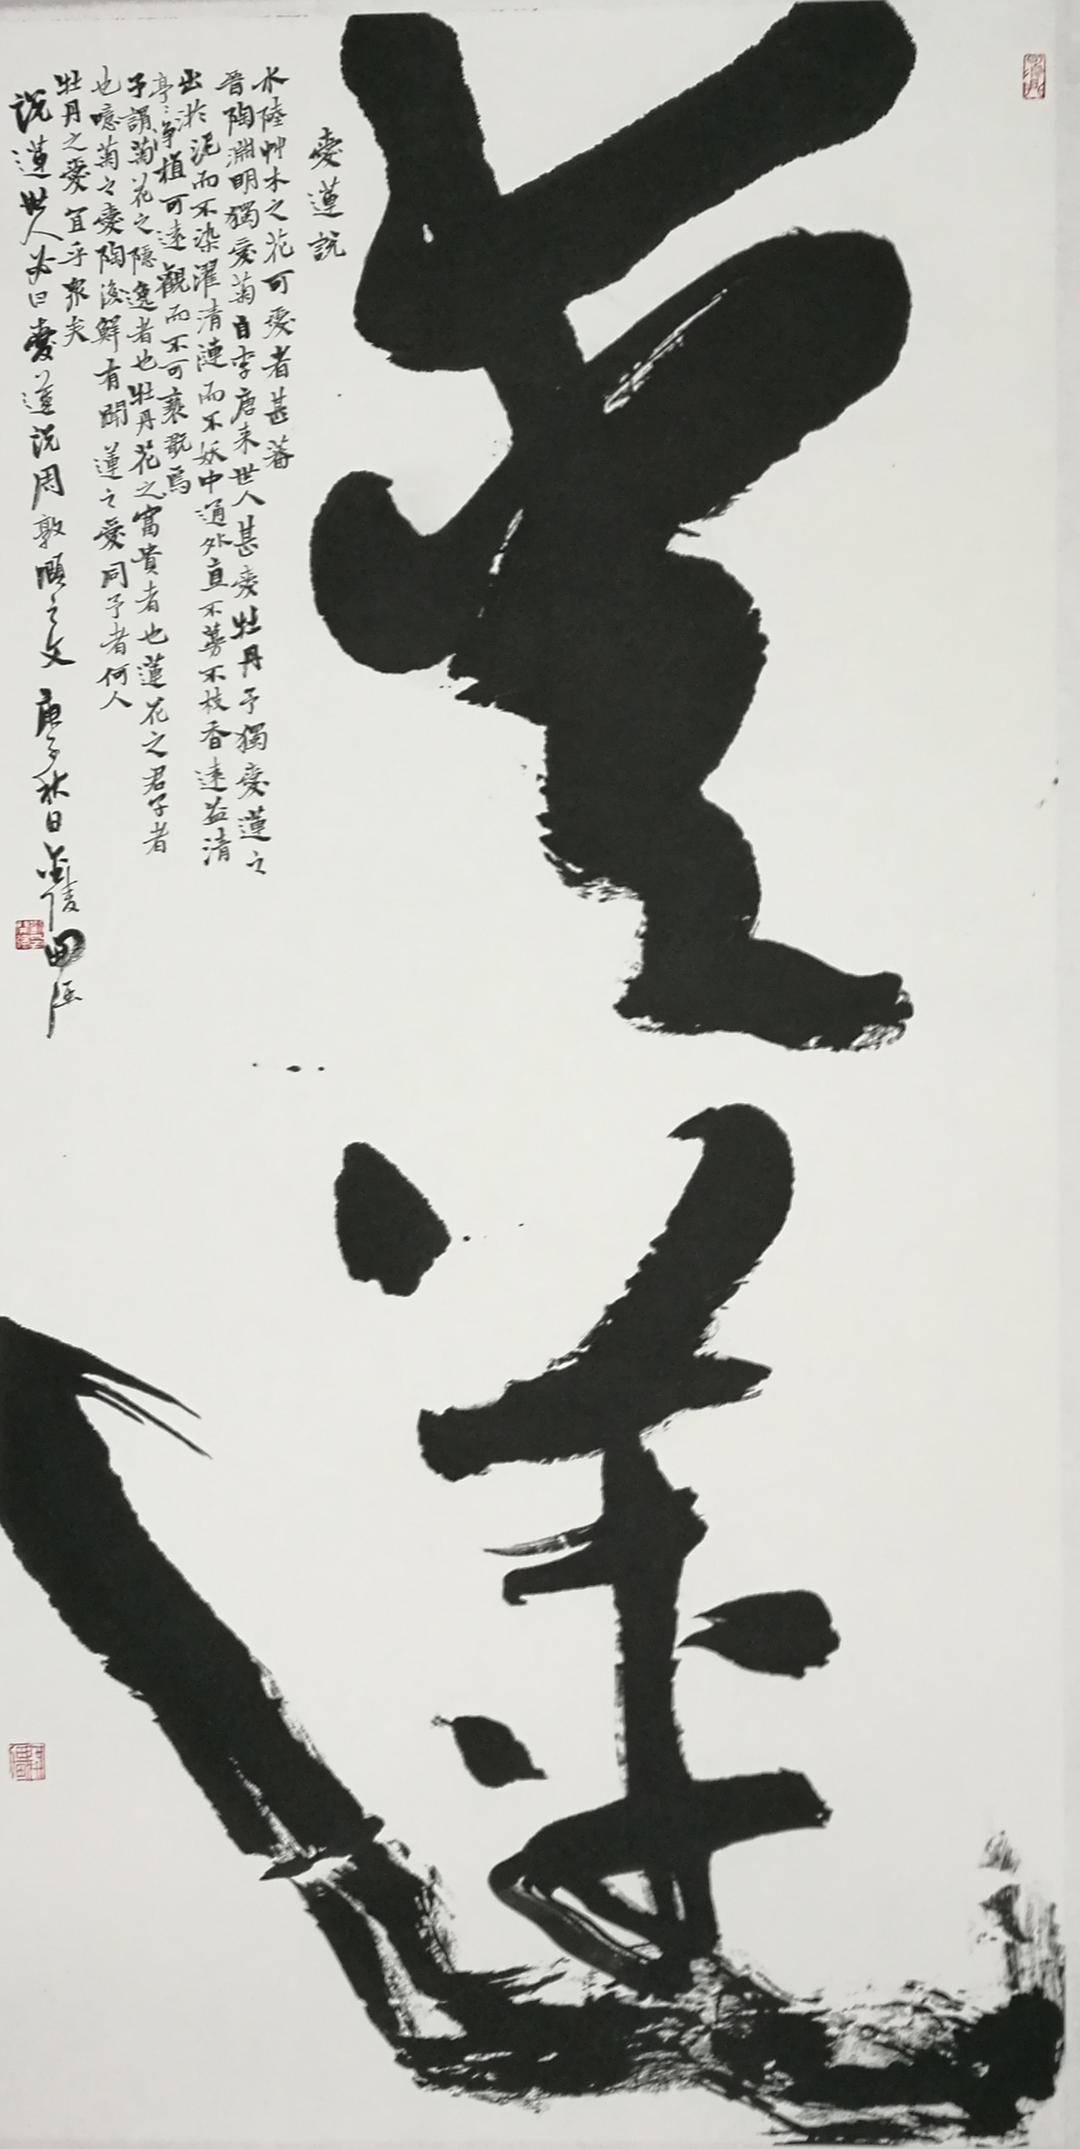 愛蓮
愛蓮說
水陸艸木之花可愛者甚蕃
晉陶淵明獨愛菊自李唐来世人甚愛牡丹予獨愛蓮之
出淤泥而不染濯清漣而不妖中通外直不蔓不枝香遠益清
亭〻净植可遠觀而不可褻翫焉
予謂菊花之隱逸者也牡丹花之富貴者也蓮花之君子者
也噫菊之愛陶後鮮有聞蓮之愛同予者何人
牡丹之愛宜乎衆矣
說蓮世人必曰愛蓮説周敦頤之文 庚子秋日金陵田